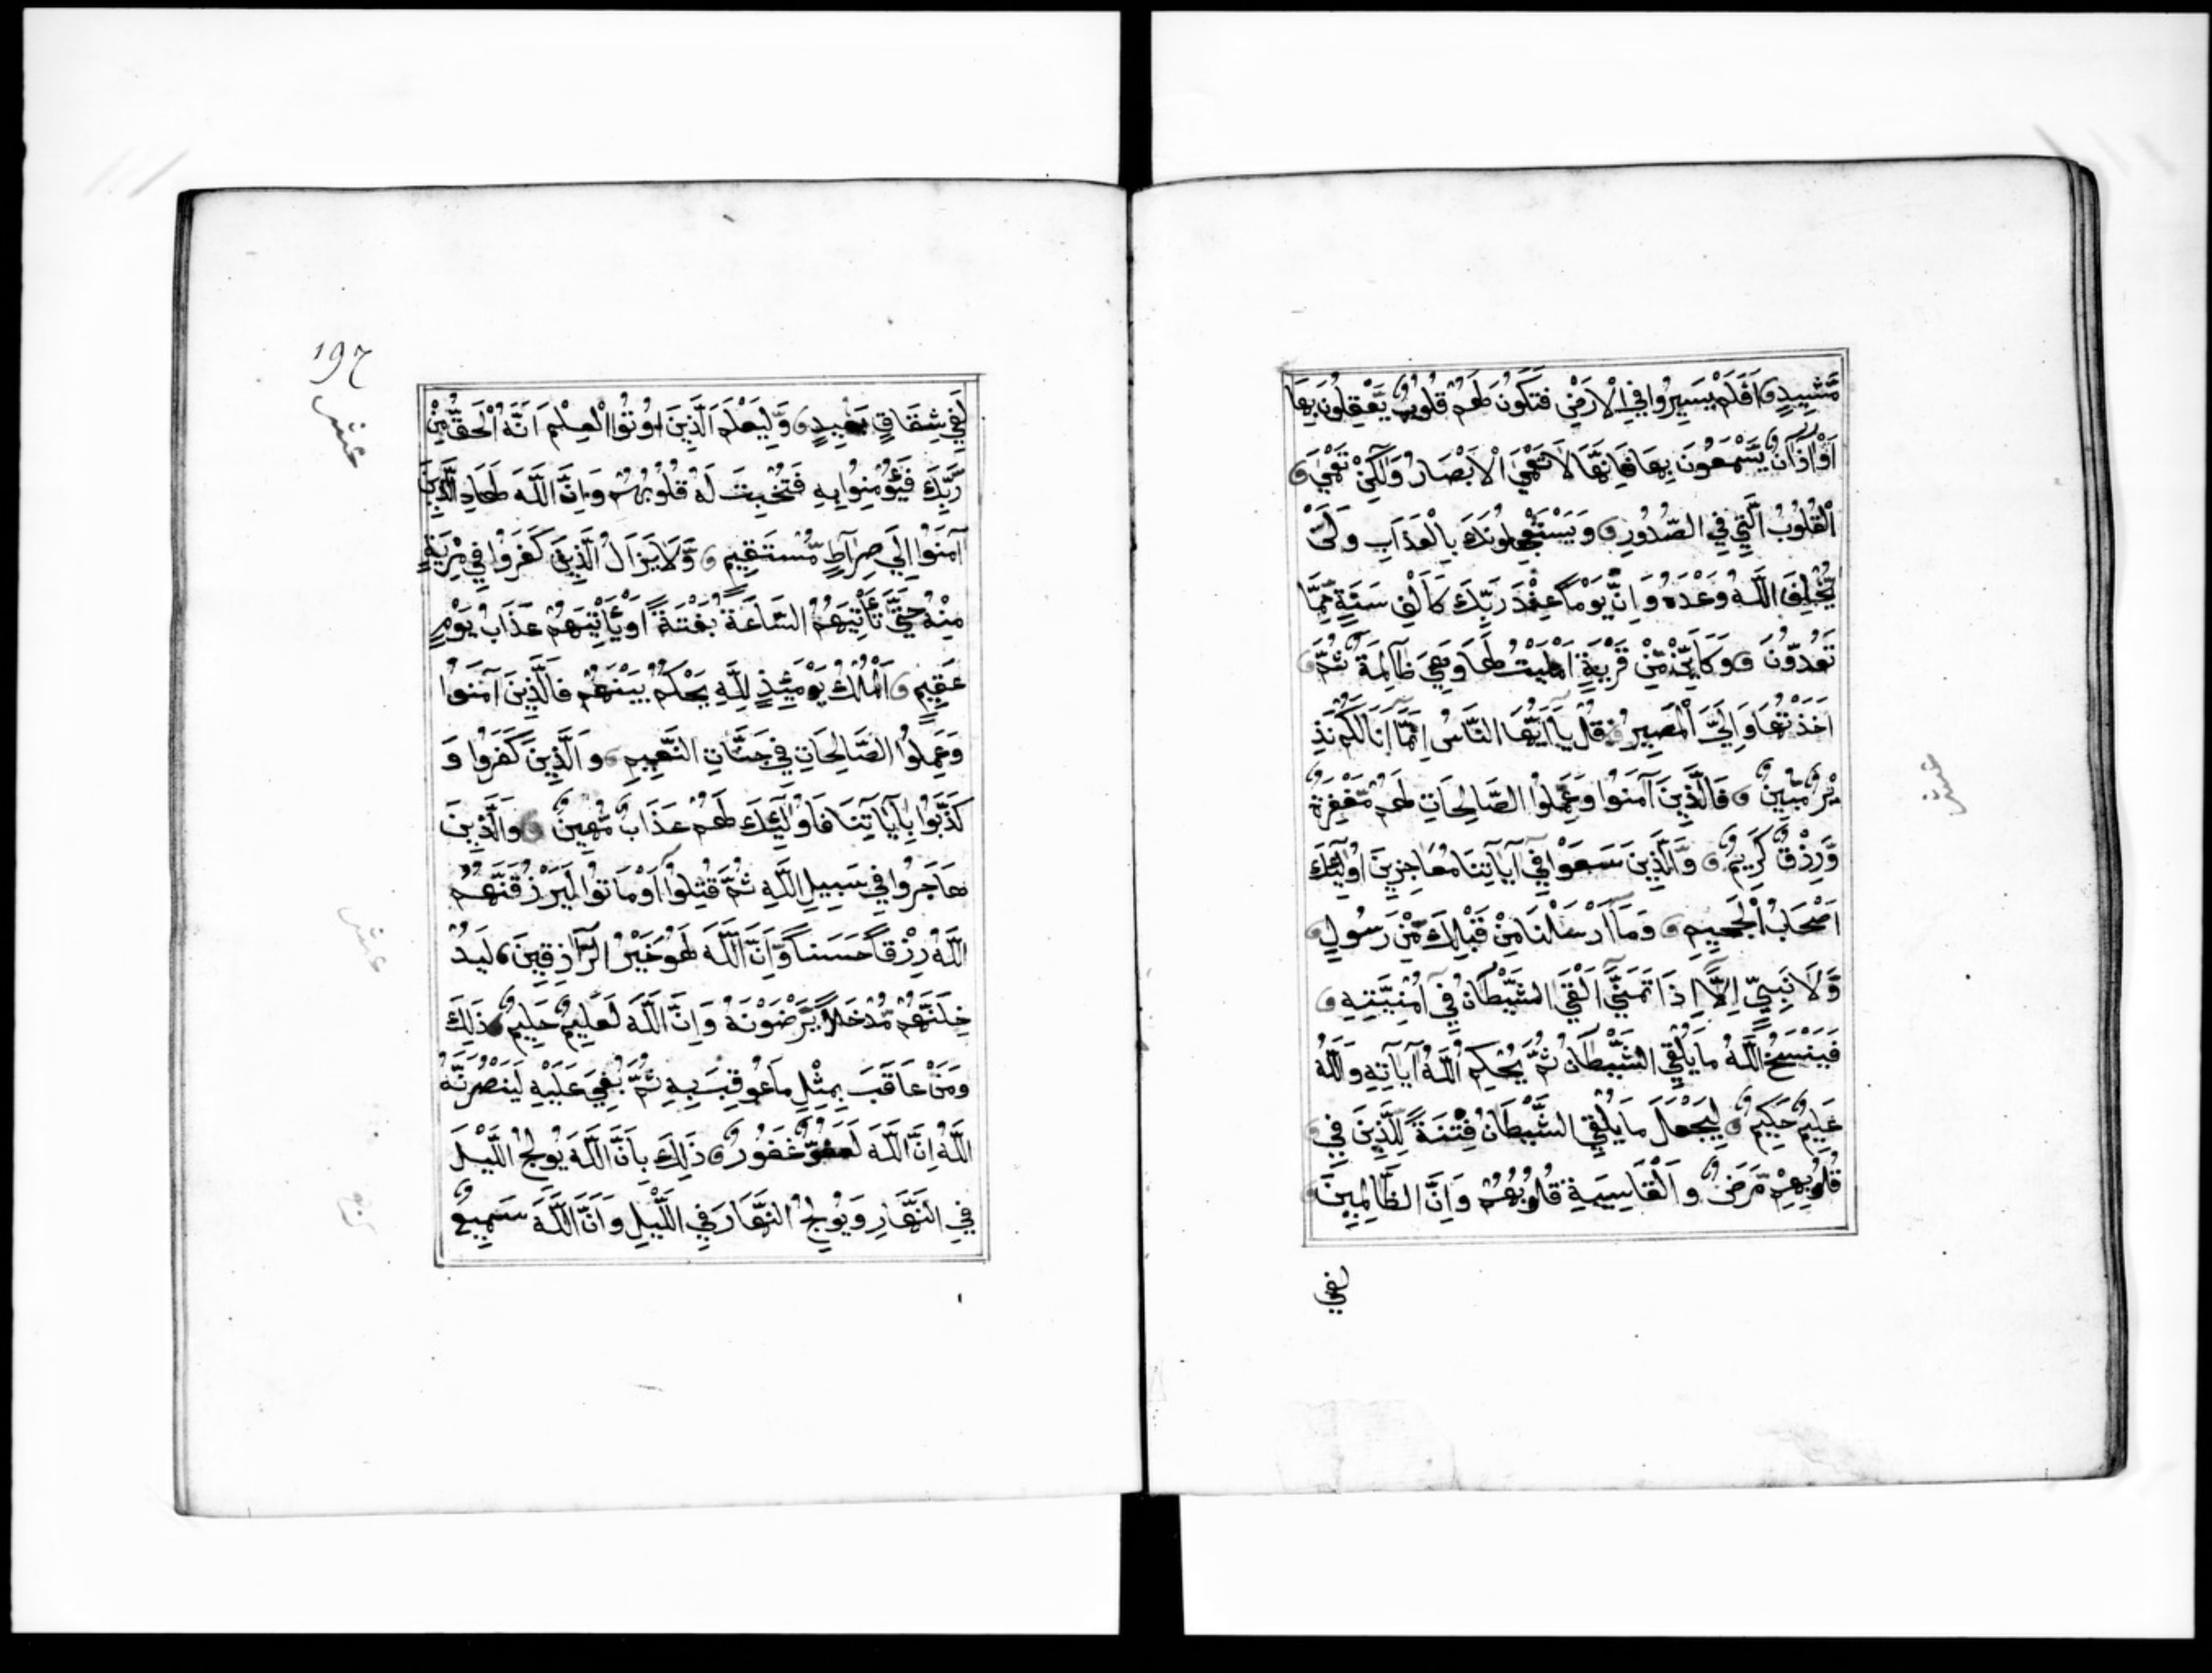 مَّشِيدٍ اَفَلَمْ يَسِيرُوا فِي الْاَرْضِ فَتَكُونَ لَهُمْ قُلُوبٌ يَّعْقِلُونَ بِهَا
اَوْ اٰذَانٌ يَّسْمَعُونَ بِهَا فَاِنَّهَا لَا تَعْمَي الْاَبْصَارُ وَلٰكِنْ تَعْمَي
الْقُلُوبُ الَّتِي فِي الصُّدُورِ وَيَسْتَعْجِلُونَكَ بِالْعَذَابِ وَلَنْ
يُّخْلِفَ اللَّهُ وَعْدَهُ وَاِنَّ يَوْمًا عِنْدَ رَبِّكَ كَاَلْفِ سَنَةٍ مِّمَّا
تَعُدُّونَ وَكَاَيِّنْ مِّنْ قَرْيَةٍ اَمْلَيْتُ لَهَا وَهِيَ ظَالِمَةٌ ثُمَّ
اَخَذْتُهَا وَاِلَيَّ الْمَصِيرُ قُلْ يَا اَيُّهَا النَّاسُ اِنَّمَا اَنَا لَكُمْ نَذِ
يْرٌ مُّبِينٌ فَالَّذِينَ آمَنُوا وَعَمِلُوا الصَّالِحَاتِ لَهُمْ مَّغْفِرَةٌ
وَّرِزْقٌ كَرِيمٌ وَالَّذِينَ سَعَوْا فِي آيَاتِنَا مُعَاجِزِينَ اُولٰئِكَ
اَصْحَابُ الْجَحِيمِ وَمَا اَرْسَلْنَا مِنْ قَبْلِكَ مِنْ رَّسُولٍ
وَّلَا نَبِيٍّ اِلَّا اِذَا تَمَنَّي اَلْقَي الشَّيْطَانُ فِي اُمْنِيَّتِهِ
فَيَنْسَخُ اللَّهُ مَا يُلْقِي الشَّيْطَانُ ثُمَّ يُحْكِمُ اللَّهُ آيَاتِهِ وَاللَّهُ
عَلِيمٌ حَكِيمٌ لِيَجْعَلَ مَا يُلْقِي الشَّيْطَانُ فِتْنَةً لِلَّذِينَ فِي
قُلُوبِهِمْ مَّرَضٌ وَالْقَاسِيَةِ قُلُوبُهُمْ وَاِنَّ الظَّالِمِينَ
لفي
عشر
197
عشر
لَفِي شِقَاقٍ بَعِيدٍ وَّلِيَعْلَمَ الَّذِينَ اُوتُوا الْعِلْمَ اَنَّهُ الْحَقُّ مِنْ
رَّبِّكَ فَيُؤْمِنُوا بِهِ فَتُخْبِتَ لَهُ قُلُوبُهُمْ وَاِنَّ اللَّهَ لَهَادِ الَّذِينَ
آمَنُوا اِلَي صِرَاطٍ مُّسْتَقِيمٍ وَّلَا يَزَالُ الَّذِينَ كَفَرُوا فِي مِرْيَةٍ
مِنْهُ حَتَّي تَأْتِيَهُمُ السَّاعَةُ بَغْتَةً اَوْ يَأْتِيَهُمْ عَذَابُ يَوْمٍ
عَقِيمٍ اَلْمُلْكُ يَوْمَئِذٍ لِلَّهِ يَحْكُمُ بَيْنَهُمْ فَالَّذِينَ آمَنُوا
وَعَمِلُوا الصَّالِحَاتِ فِي جَنَّاتِ النَّعِيمِ وَالَّذِينَ كَفَرُوا وَ
كَذَّبُوا بِاٰيَاتِنَا فَاُولٰئِكَ لَهُمْ عَذَابٌ مُّهِينٌ وَالَّذِينَ
هَاجَرُوا فِي سَبِيلِ اللَّهِ ثُمَّ قُتِلُوا اَوْ مَاتُوا لَيَرْزُقَنَّهُمُ
اللَّهُ رِزْقًا حَسَنًا وَّاِنَّ اللَّهَ لَهُوَ خَيْرُ الرَّازِقِينَ لَيُدْ
خِلَنَّهُمْ مُّدْخَلًا يَّرْضَوْنَهُ وَاِنَّ اللَّهَ لَعَلِيمٌ حَلِيمٌ ذَلِكَ
وَمَنْ عَاقَبَ بِمِثْلِ مَا عُوقِبَ بِهِ ثُمَّ بُغِيَ عَلَيْهِ لَيَنْصُرَنَّهُ
اللَّهُ اِنَّ اللَّهَ لَعَفُوٌّ غَفُورٌ ذَلِكَ بِاَنَّ اللَّهَ يُولِجُ اللَّيْلَ
فِي النَّهَارِ وَيُولِجُ النَّهَارَ فِي اللَّيْلِ وَاَنَّ اللَّهَ سَمِيعٌ
عشر